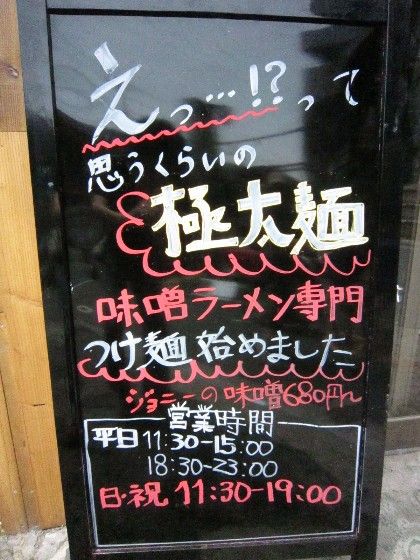 えっ…!?って
思うくらいの
極太麺
味噌ラーメン専門
つけ麺 始めました
ジョニーの味噌680円
営業時間
平日 11:30-15:00
18:30-23:00
日・祝 11:30-19:00